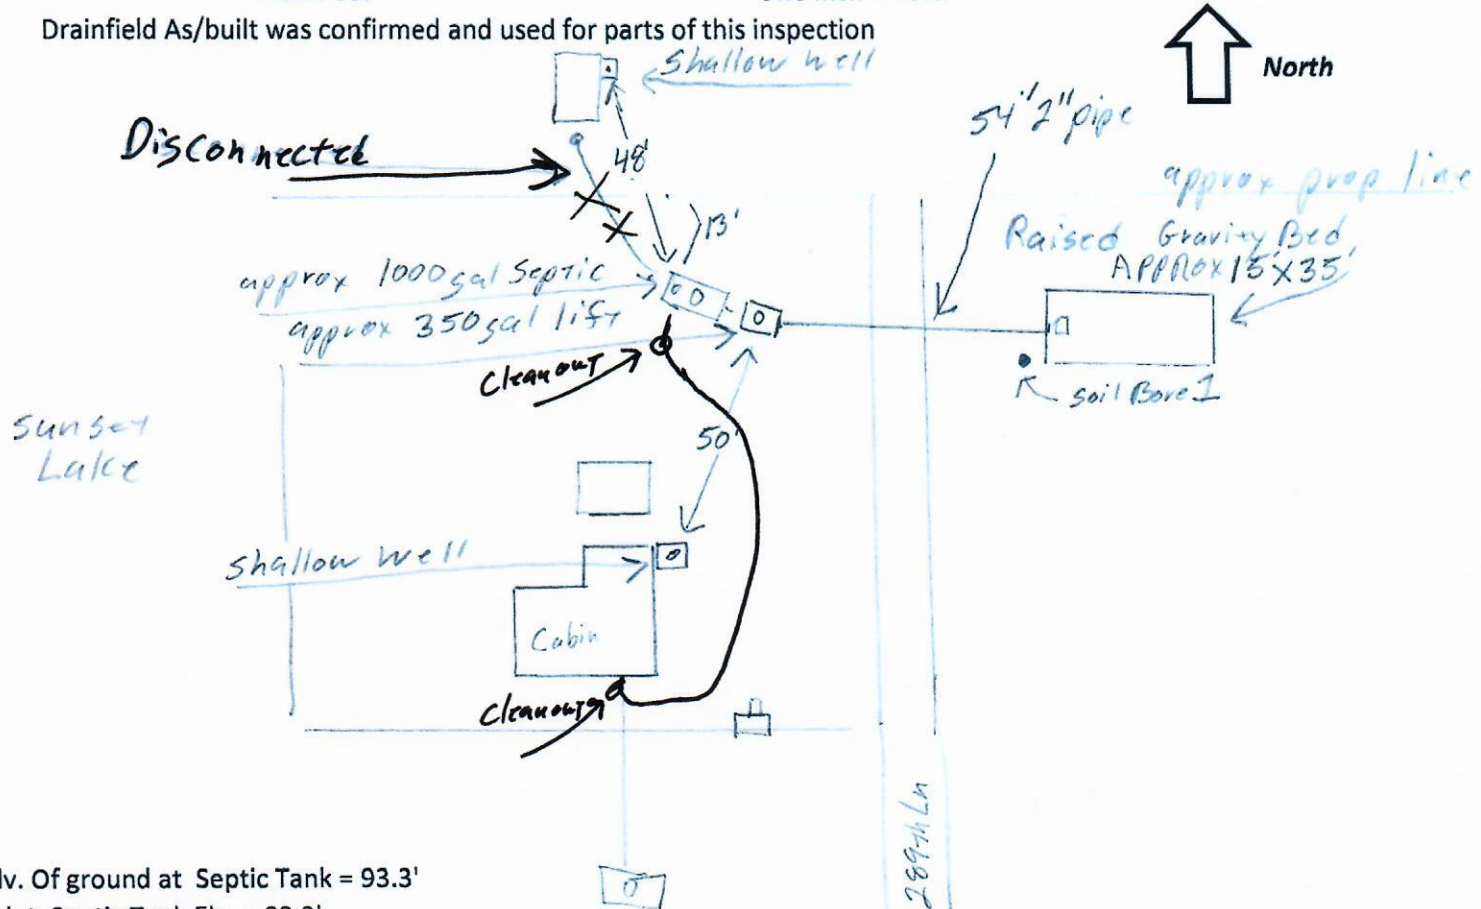 Drainfield As/built was confirmed and used for parts of this inspection
North
Shallow well
Disconnected
48'
54' 2" pipe
approx prop line
13'
Raised Gravity Bed,
APPROX 15'X35'
approx 1000gal Septic
approx 350gal lift
Cleanout
soil Bore 1
Sunset
Lake
50'
Shallow well
Cabin
Cleanout
289th Ln
lv. Of ground at Septic Tank = 93.3'